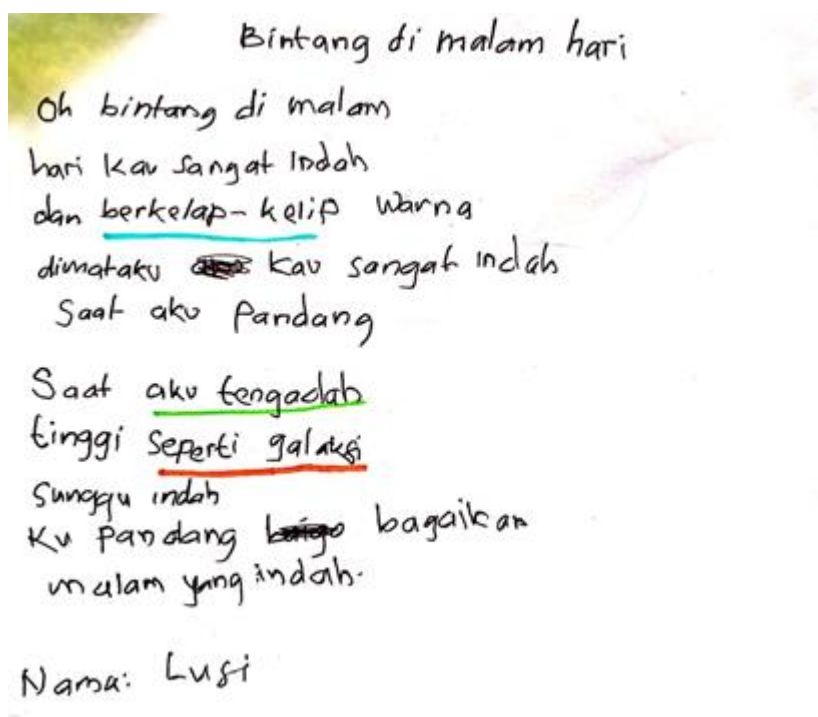 Bintang di malam hari
Oh bintang di malam
hari kau sangat indah
dan berkelap-kelip warna
dimataku kau sangat indah
Saat aku Pandang
Saat aku tengadah
tinggi seperti galaksi
Sunggu indah
Ku pandang bagaikan
malam yang indah.
Nama: Lusi